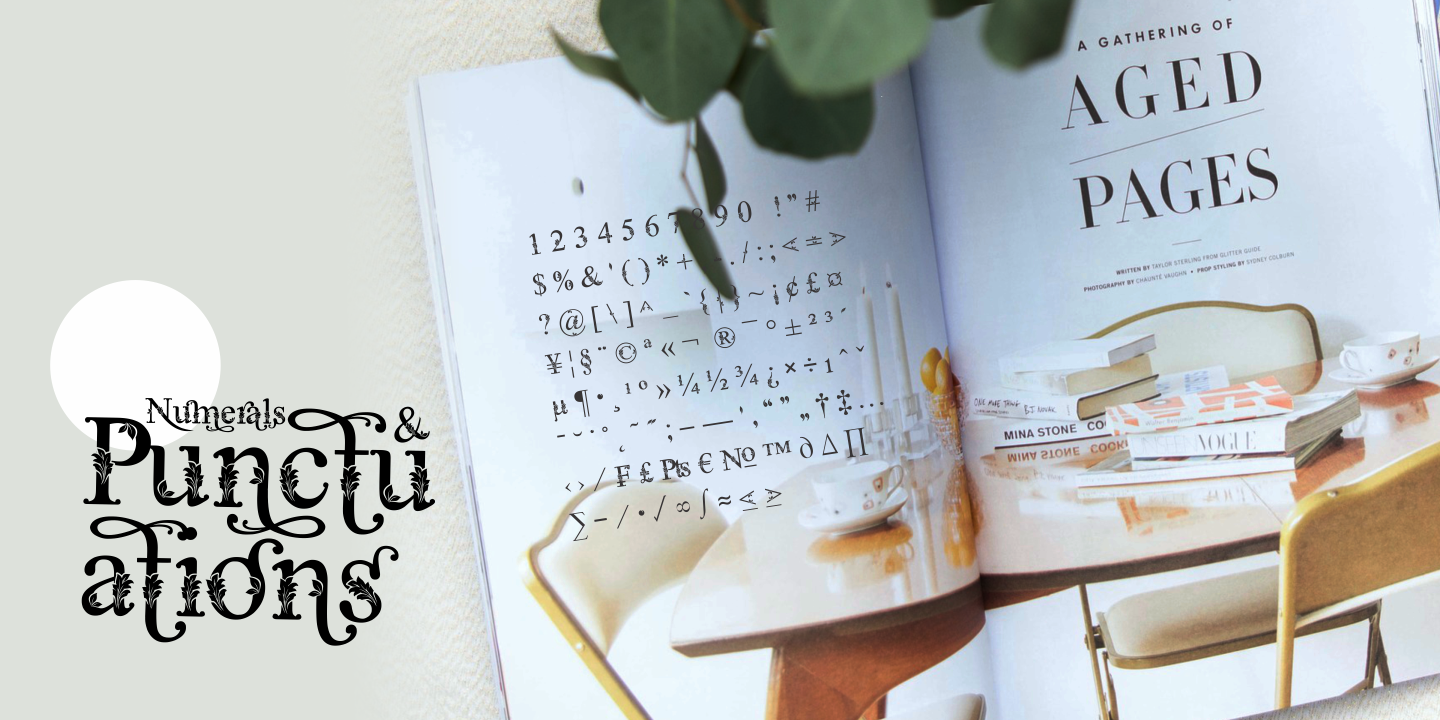 Numerals
& 
Punctu
ations
1 2 3 4 5 6 7 8 9 0 ! ” #
$ % & ' ( ) * + - . / : ; < = >
? @ [ \ ] ^ _ ` { | } ~ ¡ ¢ £ ¤
¥ ¦ § ¨ © ª « ¬ ® ¯ ° ± ² ³ ´
µ ¶ • ¸ ¹ º » ¼ ½ ¾ ¿ × ÷ 1 ˆ ˇ
‹ › ⁄ ₣ £ ₧ € № ™ ∂ ∆ ∏
∑ − ∕ ∙ √ ∞ ∫ ≈ ≤ ≥
A GATHERING OF
AGED
PAGES
WRITTEN BY TAYLOR STERLING FROM GLITTER GUIDE
PHOTOGRAPHY BY CHAUNTÉ VAUGHN • PROP STYLING BY SYDNEY COLBURN
ONE MORE THING B.J. NOVAK
MINA STONE COOK
VOGUE